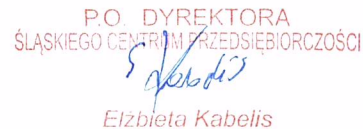 P.O. DYREKTORA
ŚLĄSKIEGO CENTRUM PRZEDSIĘBIORCZOŚCI
Elżbieta Kabelis